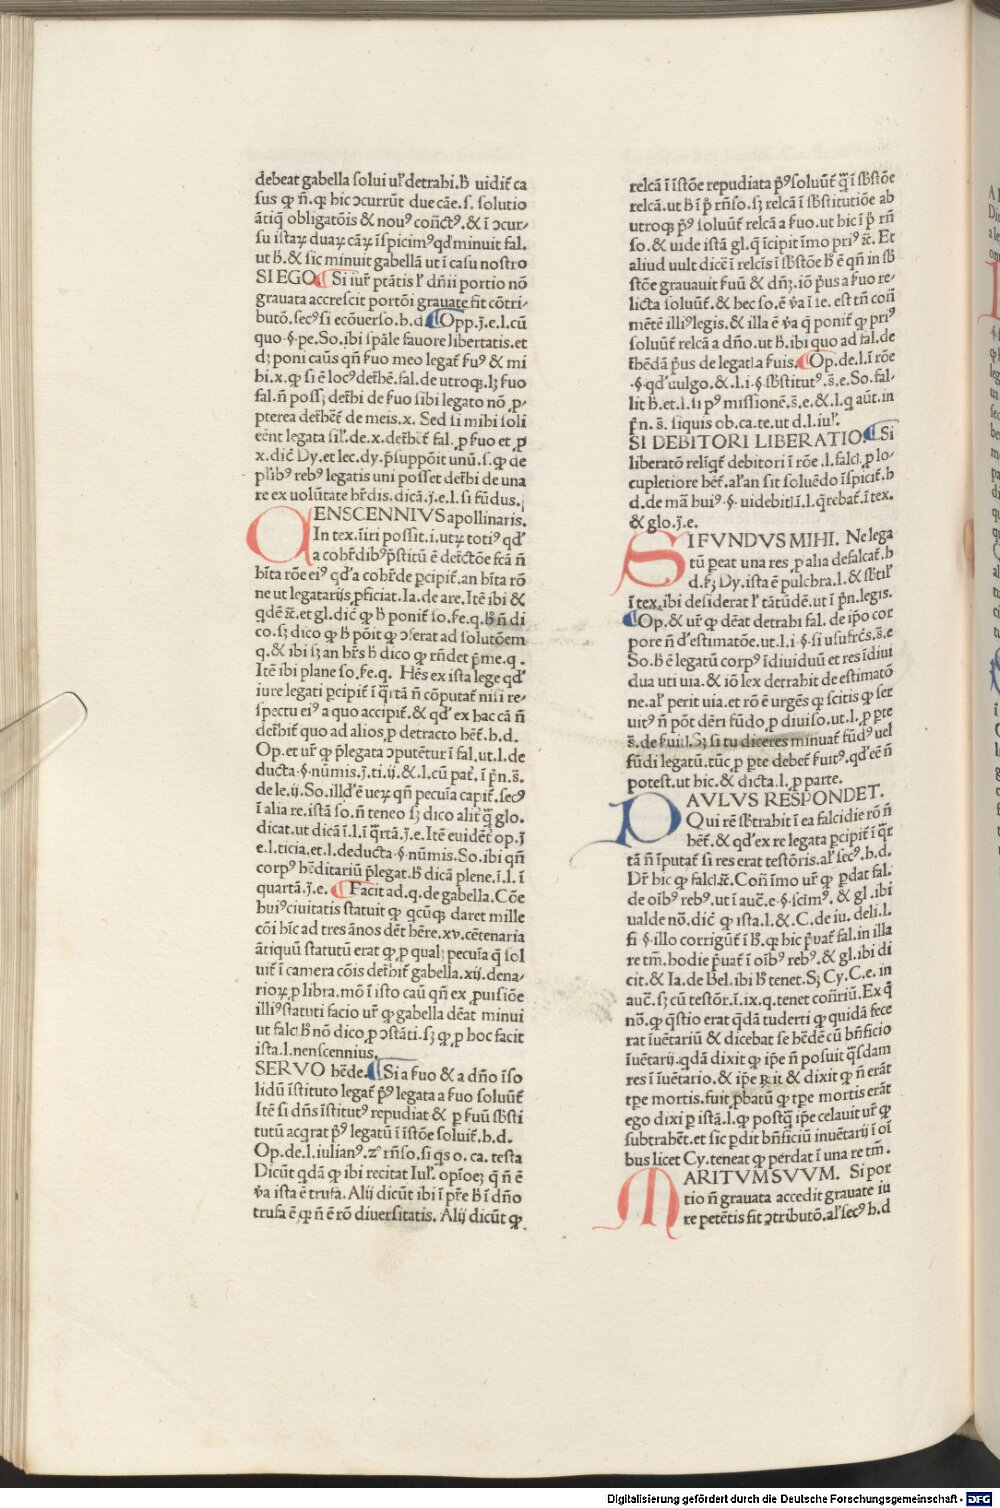 debeat gabella solui ul' detrahi.h̄ uidit̄ ca
sus ꝙ n̄.ꝙ hic ↄcurrūt due cāe.s. solutio
ātiq̄ obligatōis & nouꝰ cōn̄ctꝰ.& ī ↄcur-
su istaꝝ duaꝝ cāꝝ īspicimꝰ qd̄ minuit fal.
ut h̄.& sic minuit gabellā ut ī casu nostro
SI EGO. Si iur̄ ptātis l' dn̄ii portio nō
grauata accrescit portōi grauate fit cōtri-
butō.secꝰ si ecōuerso.h.d. Opp.j.e.l.cū
quo.§.pe.So.ibi spāle fauore libertatis.et
d; poni caūs qn̄ suo meo legat̄ suꝰ & mi
hi.x.ꝙ si ē locꝰ det̄hē.fal.de utroq;.l; suo
fal.n̄ poss; det̄hi de suo sibi legato nō ,p-
pterea det̄het̄ de meis.x. Sed si mihi soli
eēnt legata sil'.de.x.det̄het̄ fal.,p suo et ,p
x.dic̄ Dy.et lec.dy.p̄suppōit unū.s.ꝙ de
pl'ibꝰ rebꝰ legatis uni posset det̄hi de una
re ex uolūtate hr̄dis.dicā.j.e.l.si fūdus.
ENSCENNIVS apollinaris.
In tex.iiri possit.i.utꝝ totiꝰ qd'
a cohr̄dibꝰ p̄stitū ē det̄ctōe fcā n̄
hīta rōe eiꝰ qd'a cohr̄de ꝑcipit̄.an hīta rō
ne ut legatarijs ,pficiat.Ia.de are.Itē ibi &
qdē &c̄.et gl.dic̄ ꝙ h̄ ponit̄ so.se.q.h̄ n̄ di
co.s; dico ꝙ h̄ pōit ꝙ ↄferat ad solutōem
q.& ibi s; an hr̄s h̄ dico ꝙ rn̄det p̄me.q.
Itē ibi plane so.se.q. Hēs ex ista lege qd'
iure legati ꝑcipit̄ ī q̄rtā n̄ cōputat̄ nisi re-
spectu eiꝰ a quo accipit̄.& qd' ex hac cā n̄
det̄hit̄ quo ad alios,p detracto hēt̄.h.d.
Op.et ur̄ ꝙ p̄legata ↄputētur ī fal.ut.l.de
ducta.§.nūmis.j.ti.ij.& l.cū pat̄.ī p̄n.s̄.
de le.ij.So.illd'ē ueꝝ qn̄ pecuīa capit̄.secꝰ
ī alia re.istā so.n̄ teneo s; dico alit̄ q̄ glo.
dicat.ut dicā ī.l.ī q̄rtā.j.e.Itē euidēt̄ op.j
e.l.ticia.et.l.deducta.§.nūmis.So.ibi qn̄
corpꝰ hēditariū p̄legat.h̄ dicā plene.ī.l.ī
quartā.j.e. Facit ad.q.de gabella.Cōe
huiꝰciuitatis statuit ꝙ qcūq; daret mille
cōi hīc ad tres ānos dēt hēre.xv.cētenaria
ātiquū statutū erat ꝙ,p qual; pecuīa q̄ sol
uit̄ ī camera cōis det̄hit̄ gabella.xij.dena-
rioꝝ,p libra.mō ī isto caū qn̄ ex ,puisiōe
illiꝰstatuti facio ur̄ ꝙ gabella dēat minui
ut falc̄.h̄ nō dico,p ↄstāti.s; ꝙ,p hoc facit
ista.l.nenscennius.
SERVO hēde. Si a suo & a dn̄o īso
lidū īstituto legat̄ p̄ꝰ legata a suo soluūt̄
Itē si dn̄s īstitutꝰ repudiat & ꝑ suū sbsti
tutū acq̄rat p̄ꝰ legatū ī īstōe soluit̄.h.d.
Op.de.l.iulianꝰ.zͦ rn̄so.si q̄s o.ca.testa
Dicūt qdā ꝙ ibi recitat Iul'. opīoe; q̄ n̄ ē
v̄a ista ē trufa.Alij dicūt ibi ī pr̄e h̄ ī dn̄o
trufa ē ꝙ n̄ ē rō diuersitatis. Alij dicūt ꝙ
relcā ī īstōe repudiata p̄ꝰ soluūt̄ q̄ ī sb̄stōe
relcā.ut h̄ ī p̄ rn̄so.s; relcā ī sb̄stitutiōe ab
utroq; p̄ꝰ soluūt̄ relcā a suo.ut hic ī p̄ rn̄
so.& uide istā gl.q̄ īcipit īmo priꝰ &c̄. Et
aliud uult dicē ī relcīs ī sb̄stōe h̄ ē qn̄ in sb̄
stōe grauauit suū & dn̄;.iō p̄us a suo re-
licta soluūt̄.& hec so.ē v̄a ī se. est tn̄ con̄
mētē illiꝰlegis.& illa ē v̄a q̄ ponit̄ ꝙ priꝰ
soluūt̄ relcā a dn̄o.ut h̄.ibi quo ad fal.de
t̄hēdā p̄us de legatl̄a suis. Op.de.l.ī rōe
.§.qd' uulgo.&.l.i.§.sb̄stitutꝰ.s̄.e.So.fal-
lit h̄.et.ī.si pꝰ missionē.s̄.e.&.l.q aūt.in
p̄n.s̄. siquis ob.ca.te.ut d.l.iul'.
SI DEBITORI LIBERATIO. Si
liberatō reliq̄t debitori ī rōe.l.falc̄l,p lo-
cupletiore hēt̄.al'an sit soluēdo īspicit̄.h
d.de mā huiꝰ.§.uidebit̄.ī.l.q̄rebat̄.ī tex.
& glo.j.e.
I FVNDVS MIHI. Ne lega
tū ꝑeat una res,p alia defalcat̄.h
d.s; Dy.ista ē pulchra.l.& sb̄til'
ī tex.ibi desiderat l' tātūdē.ut ī p̄n.legis.
Op.& ur̄ ꝙ dēat detrahi fal.de ip̄o cor
pore n̄ d'estimatōe.ut.l.i.§.si usufrc̄s.s̄.e
So.h̄ ē legatū corpꝰ īdiuiduū et res īdiui
dua uti uia.& iō lex detrahit de estimatō
ne.al' perit uia.et rō ē urgēs q; scitis ꝙ ser
uitꝰ n̄ pōt dēri fūdo,p diuiso.ut.l.,p ꝑte
s̄.de suitl̄.S; si tu diceres minuat̄ fūdꝰ uel
fūdi legatū.tūc,p ꝑte debet̄ suitꝰ.qd'eē n̄
potest.ut hic.& dicta.l.,p parte.
AVLVS RESPONDET.
Qui rē sb̄trahit ī ea falcidie rō n̄
hēt̄.& qd' ex re legata ꝑcipit̄ ī q̄r
tā n̄ īputat̄ si res erat testōris.al' secꝰ.h.d.
Dr̄ hic ꝙ falc̄l.&c̄.Con̄ īmo ur̄ ꝙ ꝑdat fal.
de oībꝰ rebꝰ.ut ī auc̄.e.§.scīmꝰ.& gl.ibi
ualde nō.dic̄ ꝙ ista.l.& C.de iu. deli.l.
fi §.illo corrigūt̄ ī h̄.ꝙ hic p̄uat̄ fal.in illa
re tm̄.hodie p̄uat̄ ī oībꝰ rebꝰ.& gl.ibi di
cit.& Ia.de Bel.ibi h̄ tenet.S; Cy.C.e.in
auc̄.s; cū testōr.ī.ix.q.tenet con̄riū.Ex q̄
nō.ꝙ q̄stio erat qdā tuderti ꝙ quidā fece
rat īuētariū & dicebat se hēdē cū bn̄ficio
īuētarij.qdā dixit ꝙ ip̄e n̄ posuit q̄sdam
res ī īuētario.& ip̄e ꝶit & dixit ꝙ n̄ erāt
tp̄e mortis.fuit ꝓbatū ꝙ tp̄e mortis erāt
ego dixi ꝑ istā.l.ꝙ postq̄ ip̄e celauit ur̄ ꝙ
subtrahēt.et sic ꝑdit bn̄ficiū inuētarij ī oī
bus licet Cy.teneat ꝙ perdat ī una re tm̄.
ARITVM SVVM. Si por
tio n̄ grauata accedit grauate iu
re petētis fit ↄtributō.al' secꝰ h.d
Digitalisierung gefördert durch die Deutsche Forschungsgemeinschaft - DFG